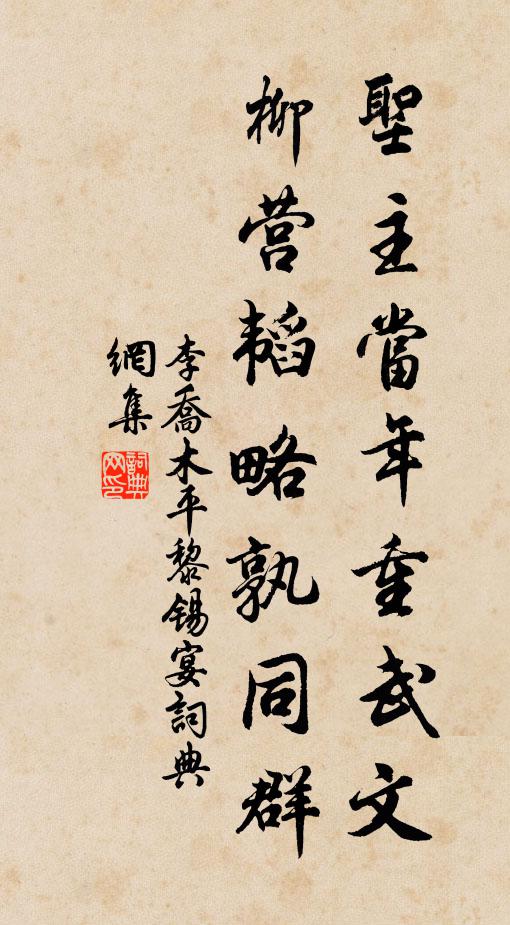 聖主當年重武文
柳营韬略孰同群
李喬木平黎錫宴詞典
網集
詞典網印